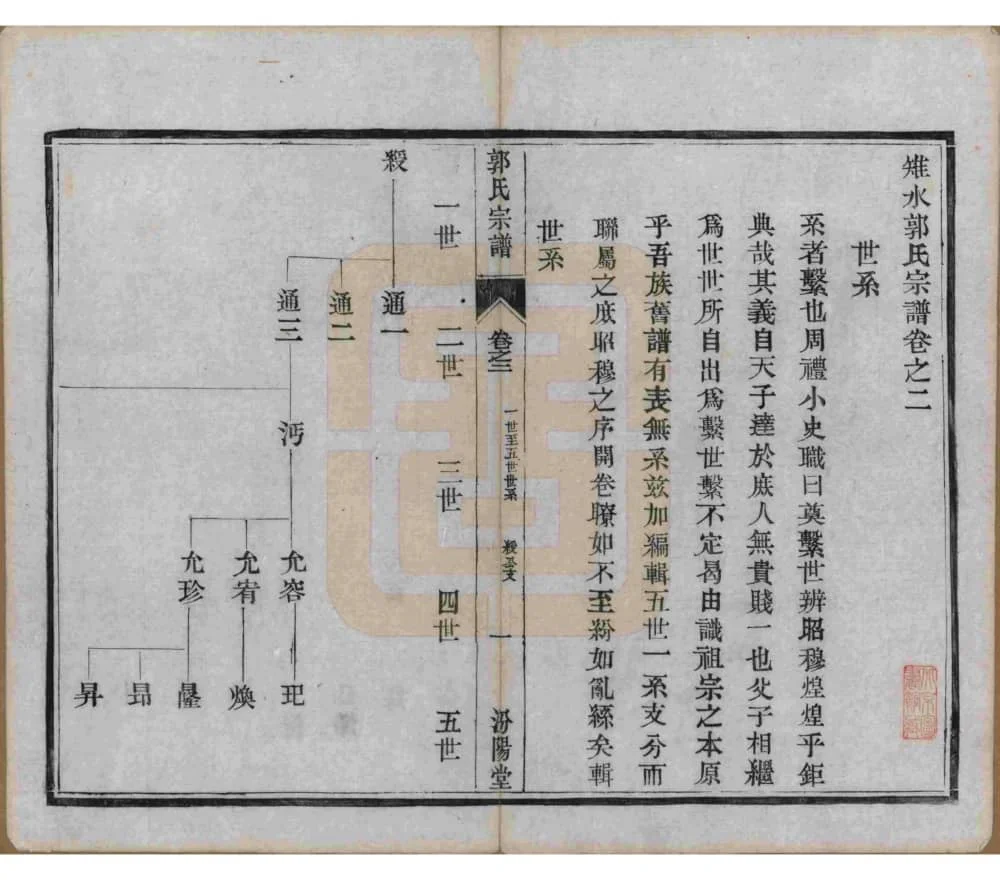 雉水郭氏宗譜卷之二
世系
系者繫也周禮小史職曰奠繫世辨昭穆煌煌乎鉅
典哉其義自天子達於庶人無貴賤一也父子相繼
爲世世所自出爲繫世繫不定曷由識祖宗之本原
乎吾族舊譜有表無系玆加編輯五世一系支分而
聯屬之庶昭穆之序開卷瞭如不至紛如亂絲矣輯
世系
郭氏宗譜
卷之二
一世至五世世系
毅公支
一
汾陽堂
一世
二世
三世
四世
五世
毅
通一
通二
通三
沔
允容
允宥
允珍
玘
煥
昂
昇